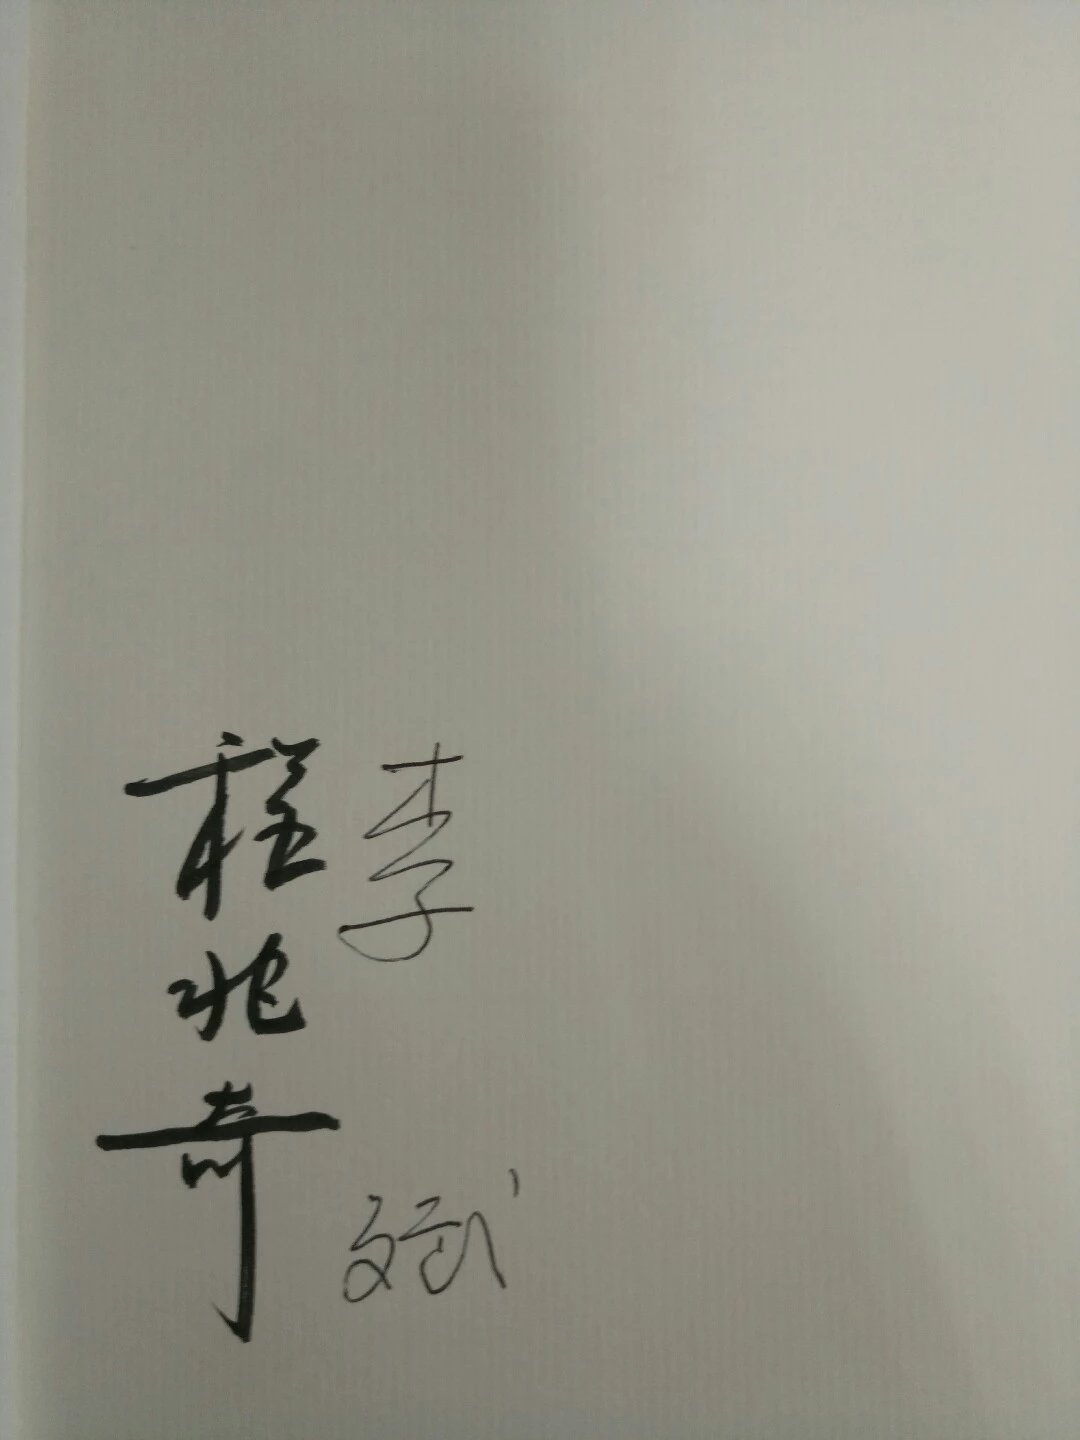 李斌
程兆奇